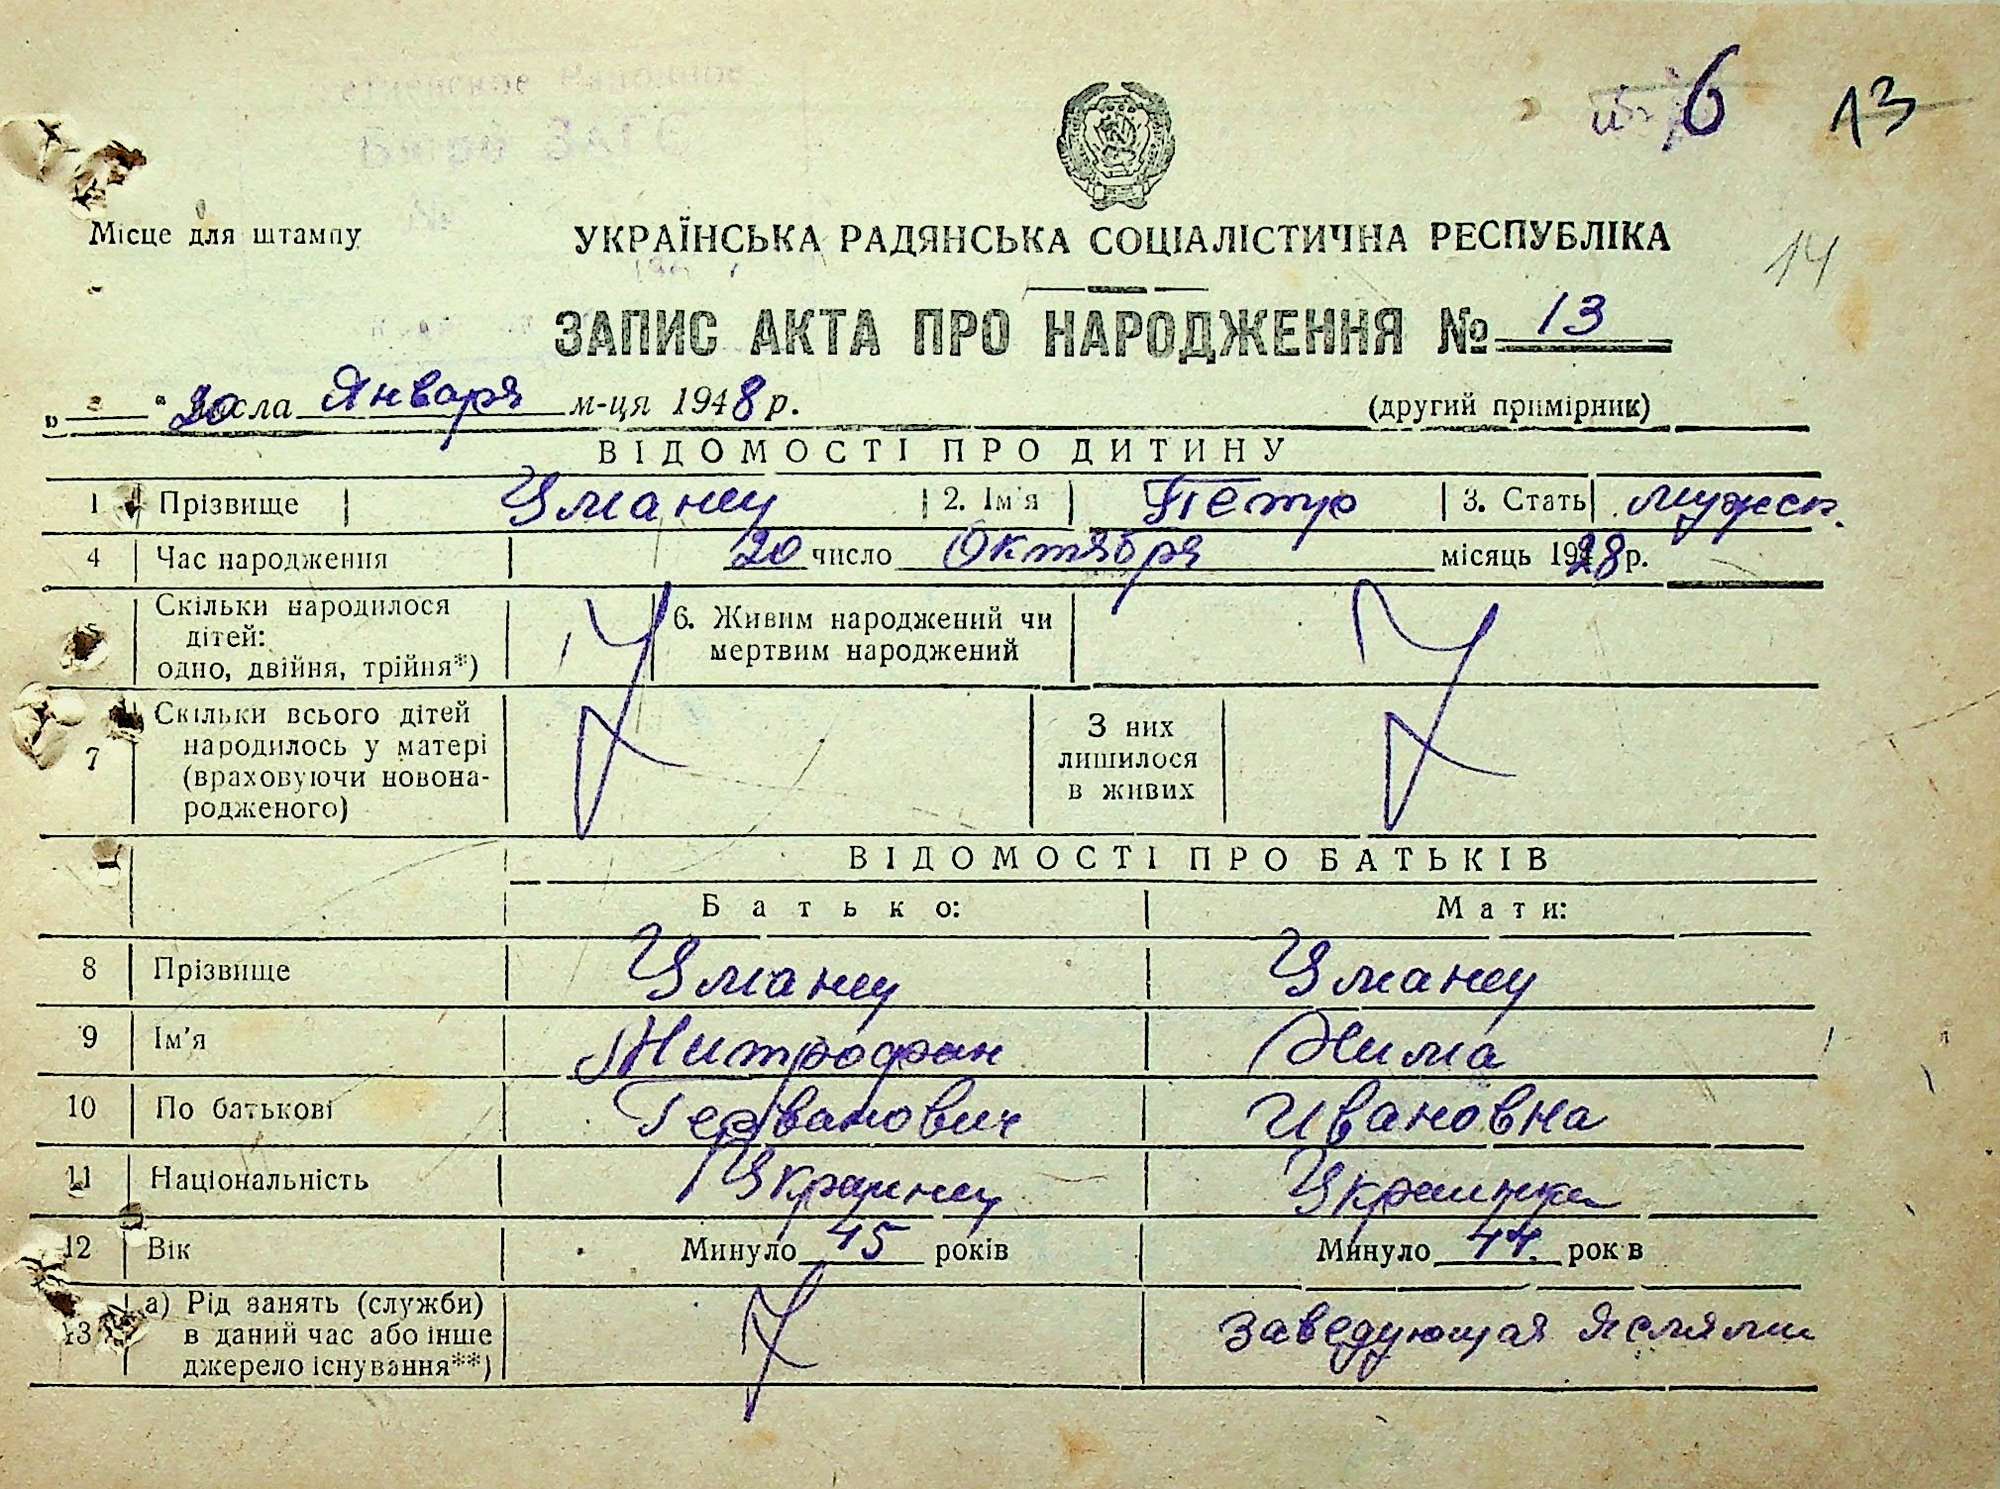 Бюро ЗАГС
№
6 13
Місце для штампу
УКРАЇНСЬКА РАДЯНСЬКА СОЦІАЛІСТИЧНА РЕСПУБЛІКА
14
ЗАПИС АКТА ПРО НАРОДЖЕННЯ № 13
„ “ 20 числа Января м-ця 1948 р. (другий примірник)
ВІДОМОСТІ ПРО ДИТИНУ
1 Прізвище Уманец 2. Ім'я Петр 3. Стать мужск.
4 Час народження 20 число Октября місяць 1928 р.
5 Скільки народилося
дітей:
одно, двійня, трійня*)
6. Живим народжений чи
мертвим народжений
7 Скільки всього дітей
народилось у матері
(враховуючи новона-
родженого)
З них
лишилося
в живих
ВІДОМОСТІ ПРО БАТЬКІВ
Батько: Мати:
8 Прізвище Уманец Уманец
9 Ім'я Митрофан
10 По батькові Ивановна
11 Національність Украинец Украинка
12 Вік Минуло 45 років Минуло 44 рок в
13 а) Рід занять (служби)
в даний час або інше
джерело існування**)
Заведующая яслями